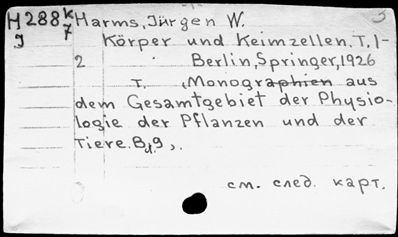 H288 k Harms, Jürgen W. 3
9 7 Körper und Keimzellen. T. 1-
2 Berlin, Springer, 1926
T. , Monographien aus
dem Gesamtgebiet der Physio-
logie der Pflanzen und der
Tiere. Bd 9 ,.
см. след. карт.